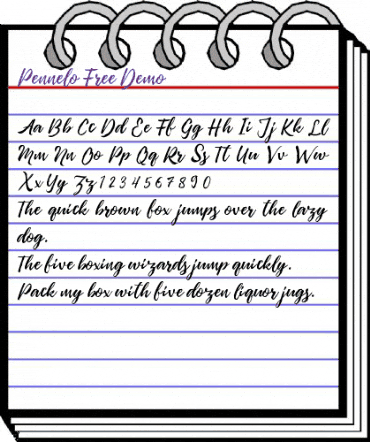 Pennelo Free Demo
Aa Bb Cc Dd Ee Ff Gg Hh Ii Jj Kk Ll
Mm Nn Oo Pp Qq Rr Ss Tt Uu Vv Ww
Xx Yy Zz 1 2 3 4 5 6 7 8 9 0
The quick brown fox jumps over the lazy
dog.
The five boxing wizards jump quickly.
Pack my box with five dozen liquor jugs.